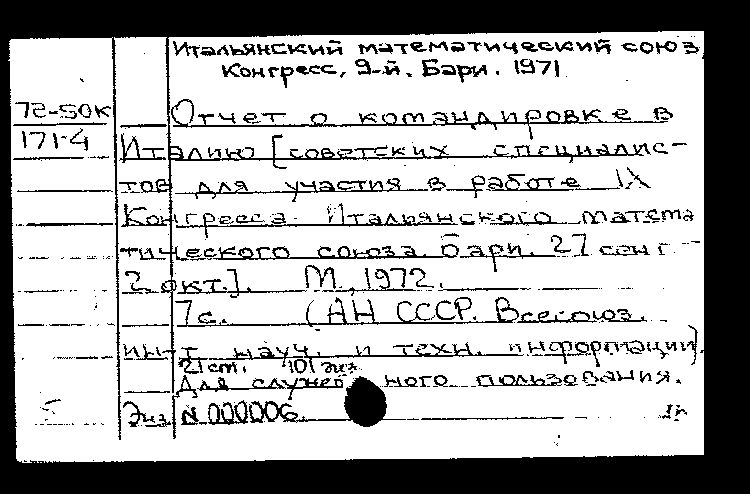 Итальянский математический союз
Конгресс, 9-й. Бари. 1971
72-50К
171-4
Отчет о командировке в
Италию [советских специалис-
тов для участия в работе IX
Конгресса Итальянского матема
тического союза. Бари. 27 сент. -
2 окт.]. М., 1972.
7с. (АН СССР. Всесоюз.
ин-т науч. и техн. информации).
21 ст. 101 экз.
Для служеб ного пользования.
Экз N 000006.